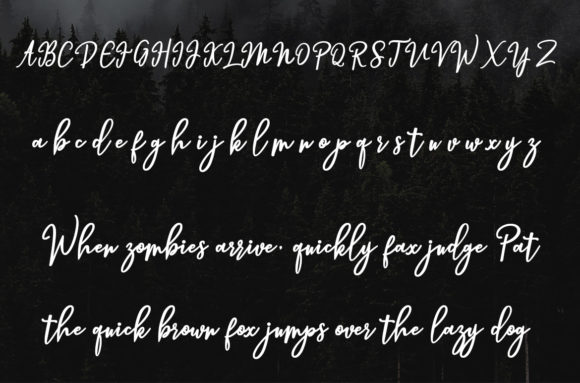 ABCDEFGHIJKLMNOPQRSTUVWXYZ
a b c d e f g h i j k l m n o p q r s t u v w x y z
When zombies arrive, quickly fax judge Pat
the quick brown fox jumps over the lazy dog